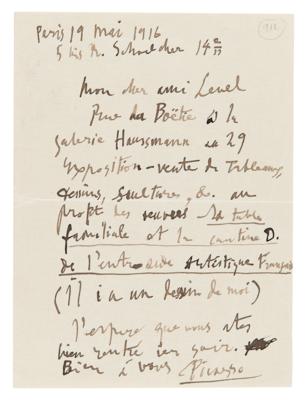 Paris 19 mai 1916
5 bis R. Schoelcher 14
Mon cher ami Level
Rue la Boëtie à la
galerie Haussmann au 29
exposition-vente de tableaux,
dessins, sculptures, &. au
profit des oeuvres la table
familiale et la cantine D.
de l'entr aide artistique Français
(Il i a un dessin de moi)
J'espere que vous etes
bien rentré
Bien à vous Picasso